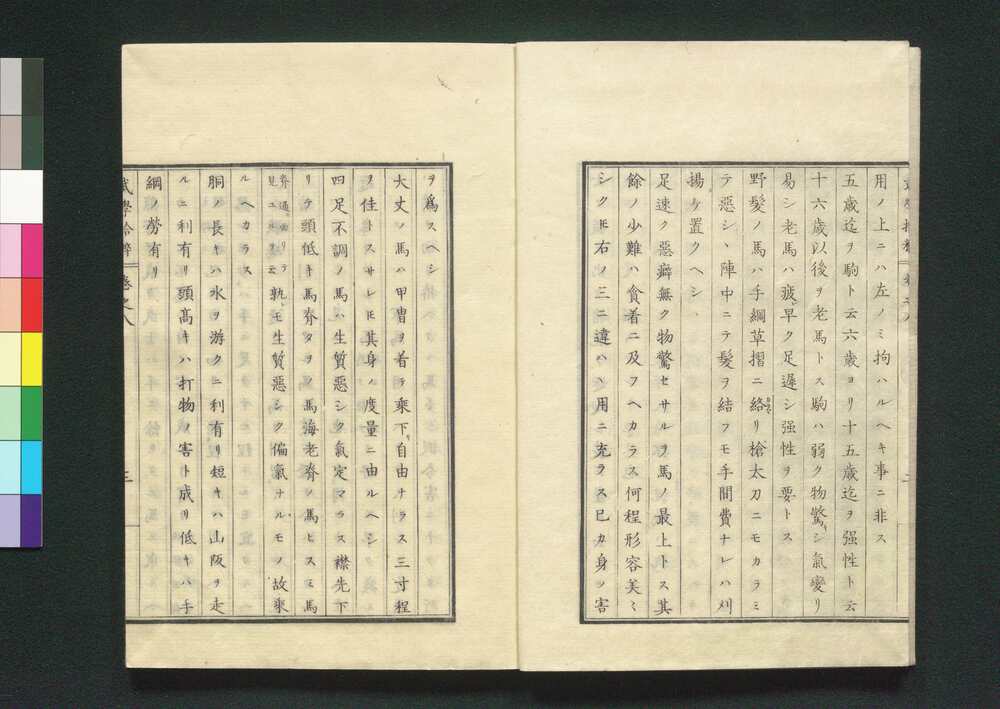 用ノ上ニハ左ノミ拘ハルヘキ事ニ非ス
五歳迄ヲ駒ト云六歳ヨリ十五歳迄ヲ强性ト云
十六歳以後ヲ老馬トス駒ハ弱ク物驚シ氣變リ
易シ老馬ハ疲早ク足遅シ强性ヲ要トス
野髮ノ馬ハ手綱草摺ニ絡リ槍太刀ニモカラミ
テ惡シヽ陣中ニテ髮ヲ結フモ手間費ナレハ刈
揚ケ置クヘシ
足速ク惡癖無ク物驚セサルヲ馬ノ最上トス其
餘ノ少難ハ貪着ニ及フヘカラス何程形容美ミ
シクヒ右ノ三ニ違ハハ用ニ充ラス已カ身ノ害
ヲ爲スヘシ
大丈ノ馬ハ甲冑ヲ着テ乘下自由ナラス三寸程
ヲ佳トスサレヒ其身ノ度量ニ由ルヘシ
四足不調ノ馬ハ生質惡シク氣定マラス襟先下
リテ頭低キ馬脊タヲノ馬海老脊ノ馬ヒスミ馬
孰モ生質惡シク偏氣ナルモノ故乘
ルヘカラス
胴ノ長キハ水ヲ游クニ利有リ短キハ山阪ヲ走
ルニ利有リ頭高キハ打物ノ害ト成リ低キハ手
綱ノ勞有リ
武學拾粹 卷之八 三